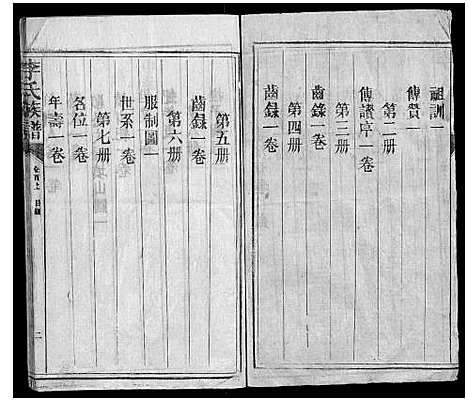 祖訓一
傳贊一
第二册
傳讚序一卷
第三册
齒錄一卷
第四册
齒録一卷
第五册
齒録一卷
第六册
服制圖一
世系一卷
第七册
名位一卷
年壽一卷
李氏族譜
卷首上 目録
二